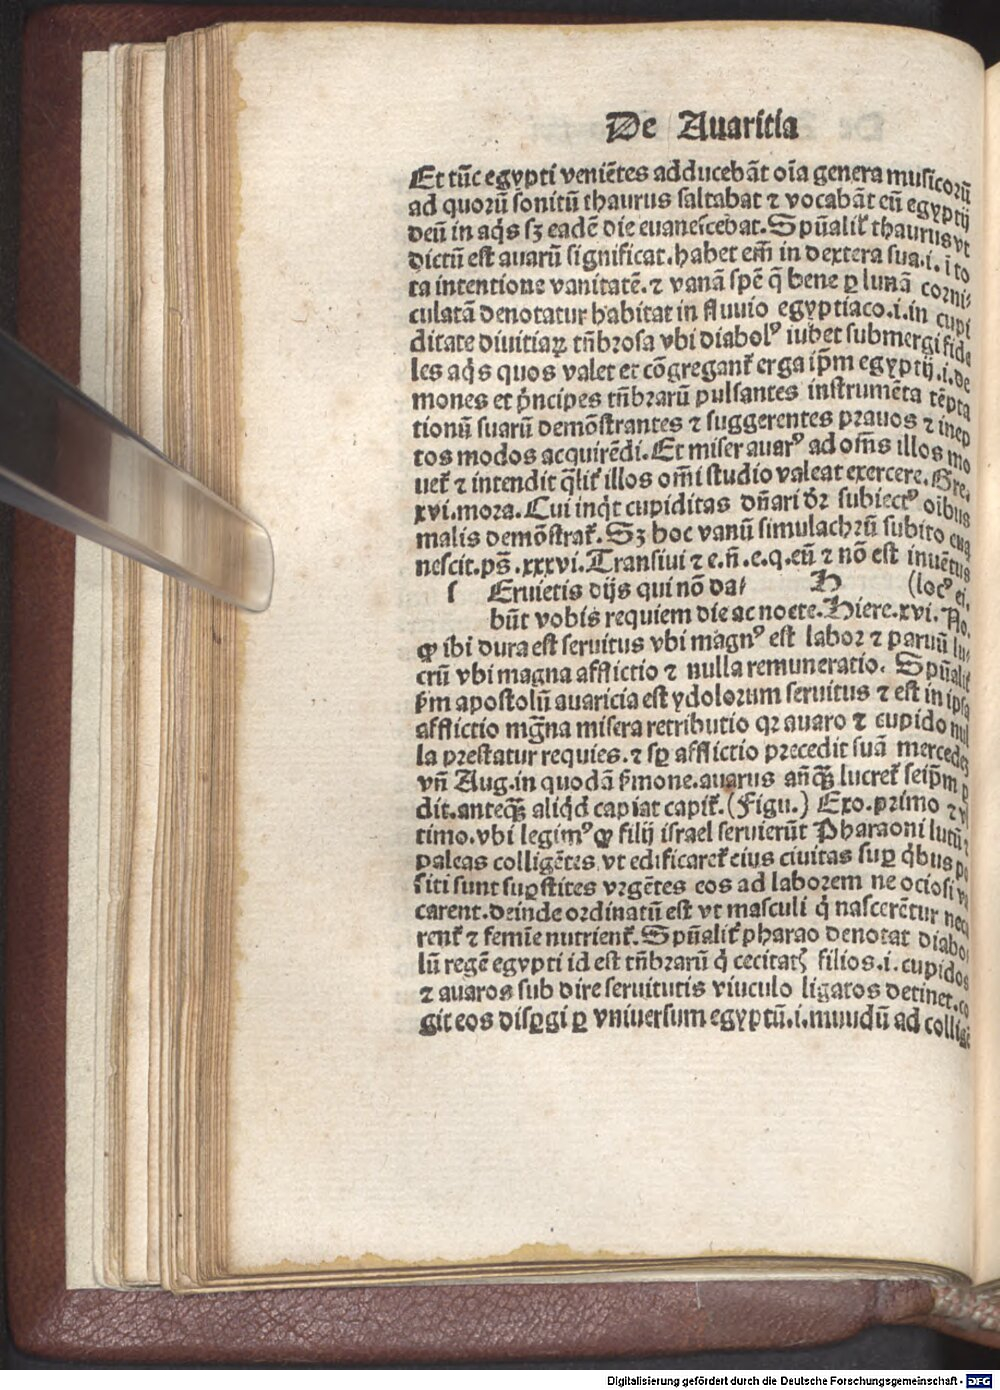 De Auaritia
Et tūc egypti veniētes adducebāt oīa genera musicorū
ad quorū sonitū thaurus saltabat ⁊ vocabāt eū egyptij
deū in aq̄s sꝫ eadē die euanescebat. Spūalit᷑ thaurus vt
dictū est auarū significat. habet em̄ in dextera sua .i. ī to
ta intentione vanitatē. ⁊ vanā spē q̄ bene ꝑ lunā corni⸗
culatā denotatur habitat in fluuio egyptiaco .i. in cupi
ditate diuitiaꝝ tn̄brosa vbi diabolꝰ iubet submergi fide
les aq̄s quos valet et cōgregant᷑ erga ip̄m egyptij .i. de
mones et p̄ncipes tn̄brarū pulsantes instrumēta tēpta
tionū suarū demōstrantes ⁊ suggerentes prauos ⁊ inep
tos modos acquirēdi. Et miser auarꝰ ad om̄s illos mo
uet᷑ ⁊ intendit q̄lit᷑ illos om̄i studio valeat exercere. Gre.
xvi. mora. Cui inq̇t cupiditas dn̄ari dr̄ subiectꝰ oībus
malis demōstrat᷑. Sꝫ hoc vanū simulachrū subito eua
nescit. ps̄. xxxvi. Transiui ⁊ e. n̄. e. q. eū ⁊ nō est inuētus
s Eruietis dijs qui nō da⸗ H (locꝰ ei.
būt vobis requiem die ac nocte. Hiere. xvi. No.
ꝙ ibi dura est seruitus vbi magnꝰ est labor ⁊ paruū lu⸗
crū vbi magna afflictio ⁊ nulla remuneratio. Spūalit᷑
s̄m apostolū auaricia est ydolorum seruitus ⁊ est in ipsa
afflictio mg̅na misera retributio qꝛ auaro ⁊ cupido nul
la prestatur requies. ⁊ sꝑ afflictio precedit suā mercedeꝫ
vn̄ Aug. in quodā s̄mone. auarus an̄qꝫ̄ lucret᷑ seip̄m ꝑ
dit. anteqꝫ̄ aliq̇d capiat capit᷑. (Figu.) Exo. primo ⁊ vl
timo. vbi legimꝰ ꝙ filij israel seruierūt Pharaoni lutū ⁊
paleas colligētes vt edificaret᷑ eius ciuitas suꝑ q̇bus po
siti sunt suꝑstites vrgētes eos ad laborem ne ociosi va
carent. deinde ordinatū est vt masculi q̇ nascerētur neca
rent᷑ ⁊ femīe nutrient᷑. Spūalit᷑ pharao denotat diabo⸗
lū regē egypti id est tn̄brarū q̇ cecitatꝭ filios .i. cupidos
⁊ auaros sub dire seruitutis viuculo ligatos detinet. co
git eos disꝑgi ꝑ vniuersum egyptū .i. muudū ad colligē
Digitalisierung gefördert durch die Deutsche Forschungsgemeinschaft - DFG